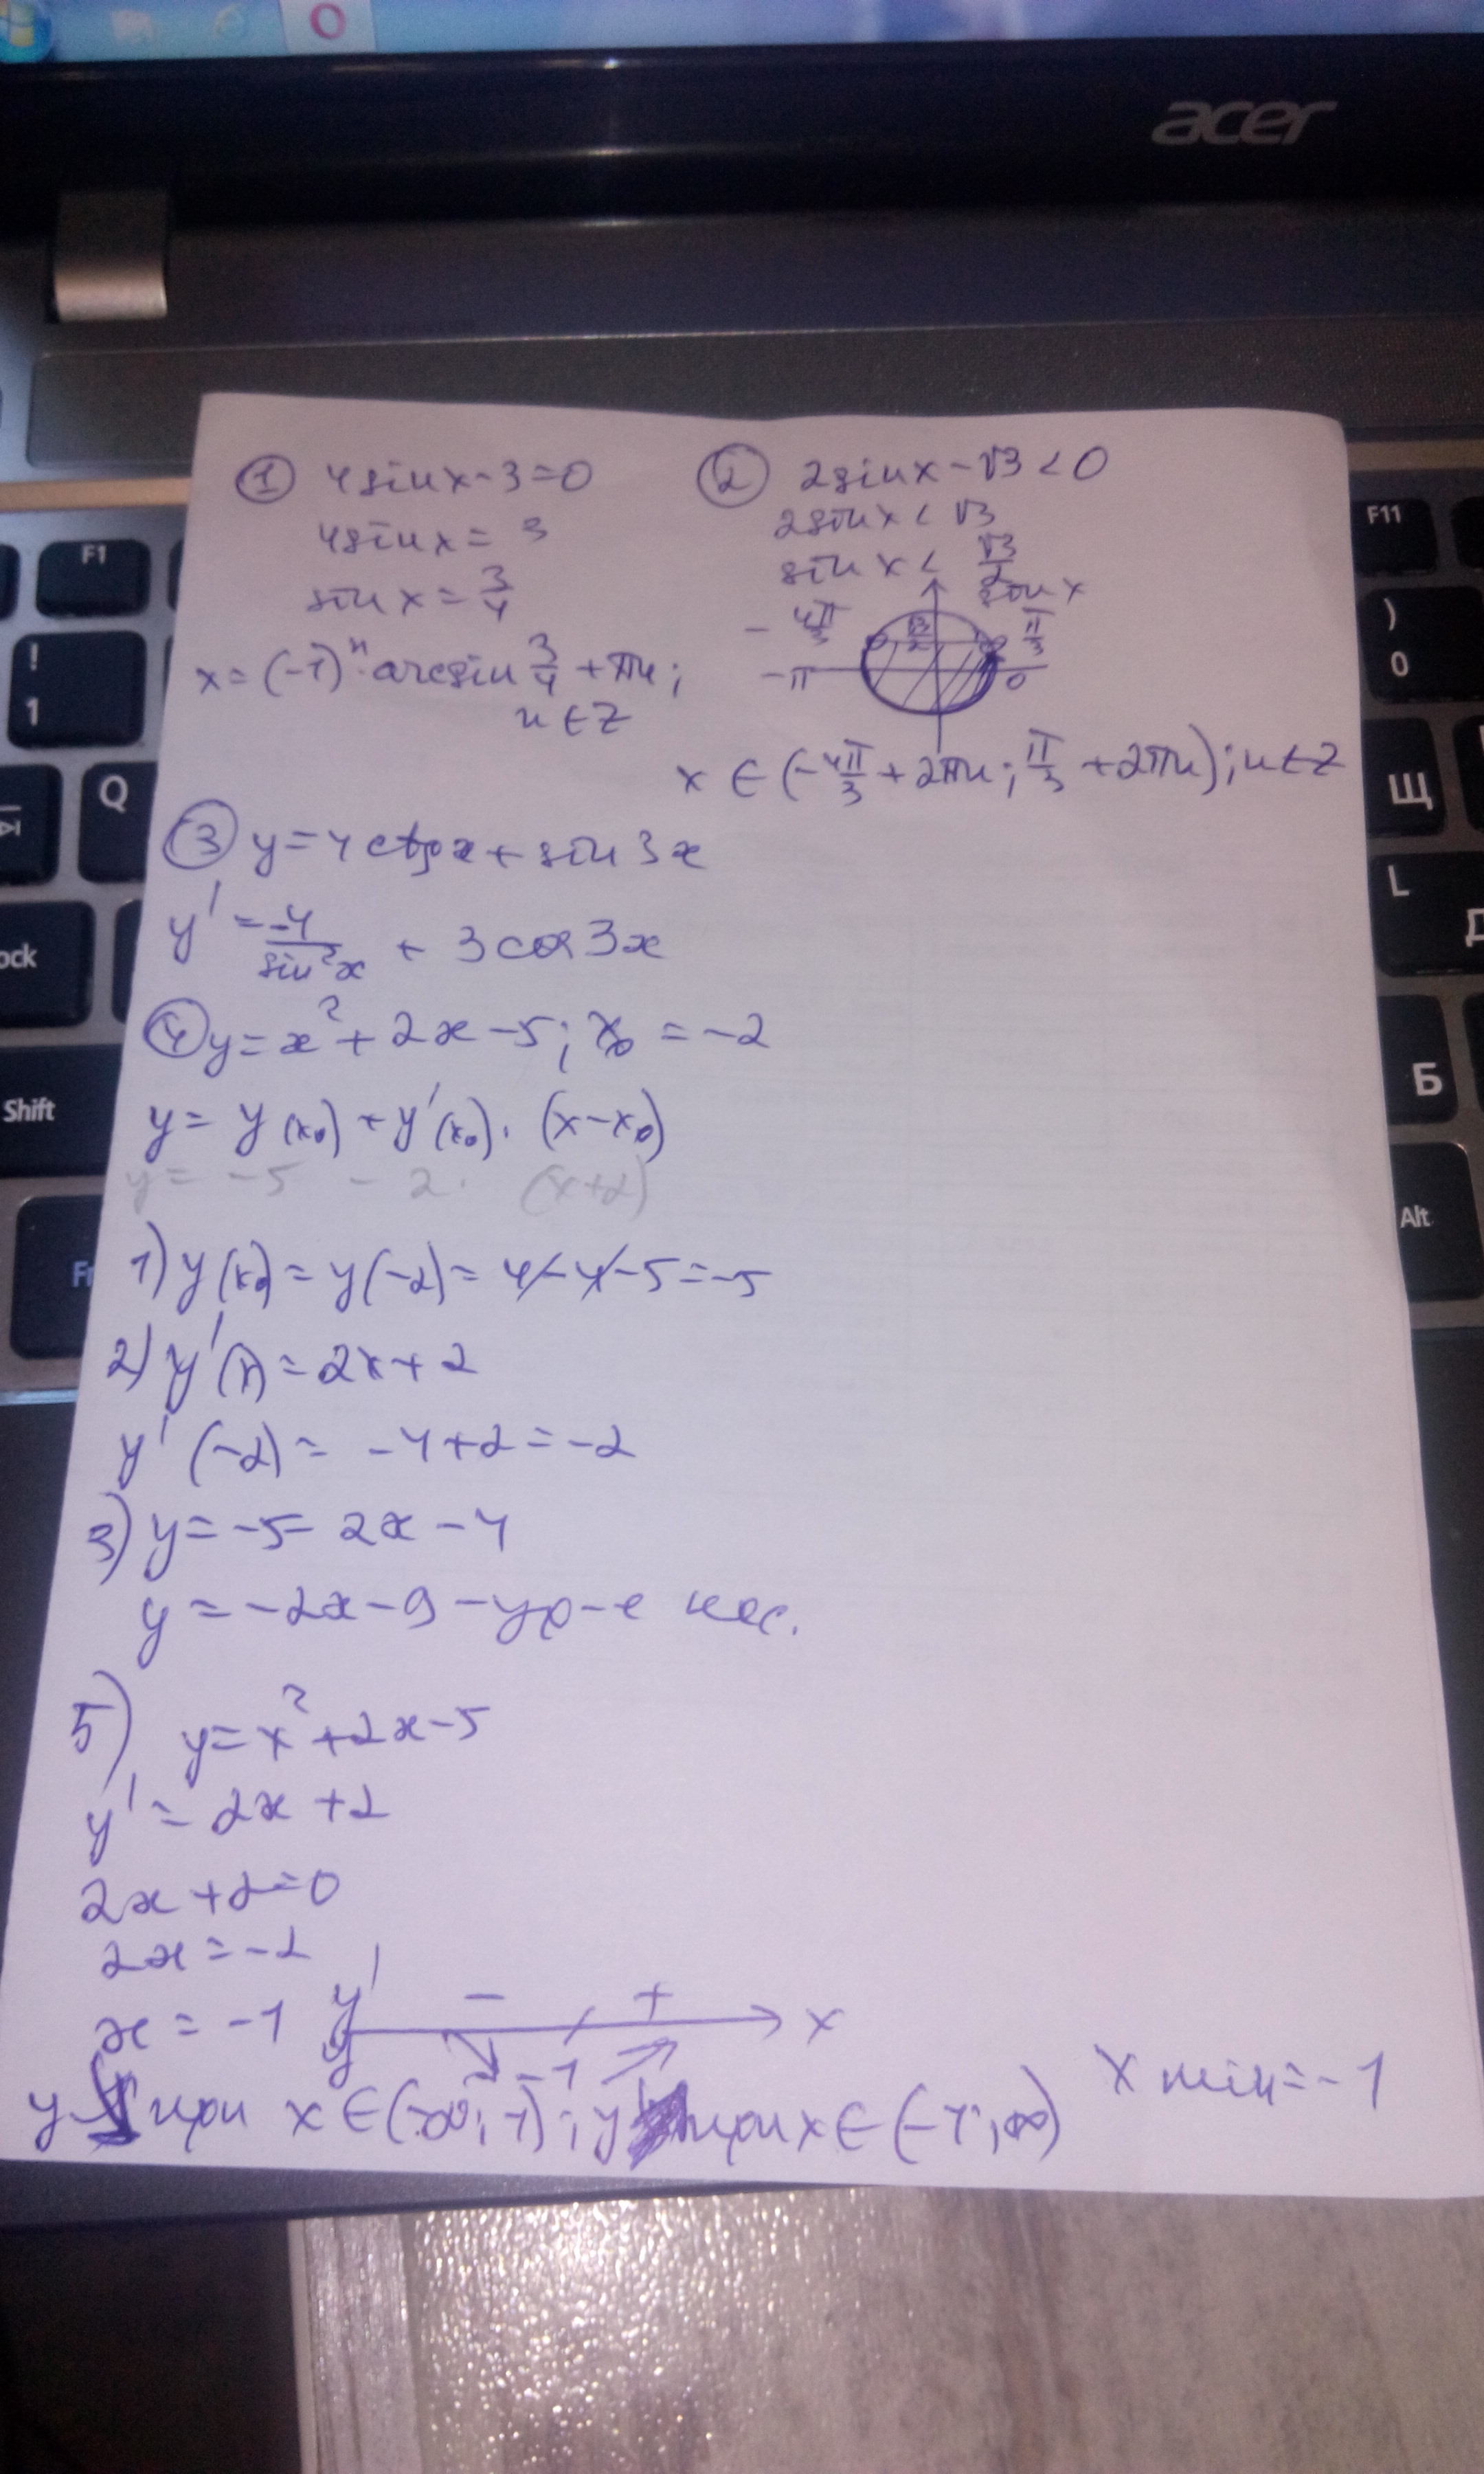 acer
F1
F11
!
1
)
0
Q
Щ
L
Д
ock
Shift
Б
Alt
Fn
① 4sinx-3=0
4sinx = 3
sin x = 3/4
x = (-1)ⁿ·arcsin 3/4 + πn;
n ∈ Z
② 2sinx - √3 < 0
2sinx < √3
sin x < √3/2
sin x
-4π/3
√3/2
π/3
-π
0
x ∈ (-4π/3 + 2πn; π/3 + 2πn); n ∈ Z
③ y = 4ctgx + sin3x
y' = -4/sin²x + 3cos3x
④ y = x² + 2x - 5; x₀ = -2
y = y(x₀) + y'(x₀)·(x-x₀)
y = -5 - 2·(x+2)
1) y(x₀) = y(-2) = 4-4-5 = -5
2) y'(x) = 2x+2
y'(-2) = -4+2 = -2
3) y = -5 - 2x - 4
y = -2x-9 - ур-е кас.
5) y = x² + 2x - 5
y' = 2x + 2
2x + 2 = 0
2x = -2
x = -1
y' - + x
y ↘ -1 ↗
x min = -1
y при x ∈ (-∞; -1); y при x ∈ (-1; ∞)